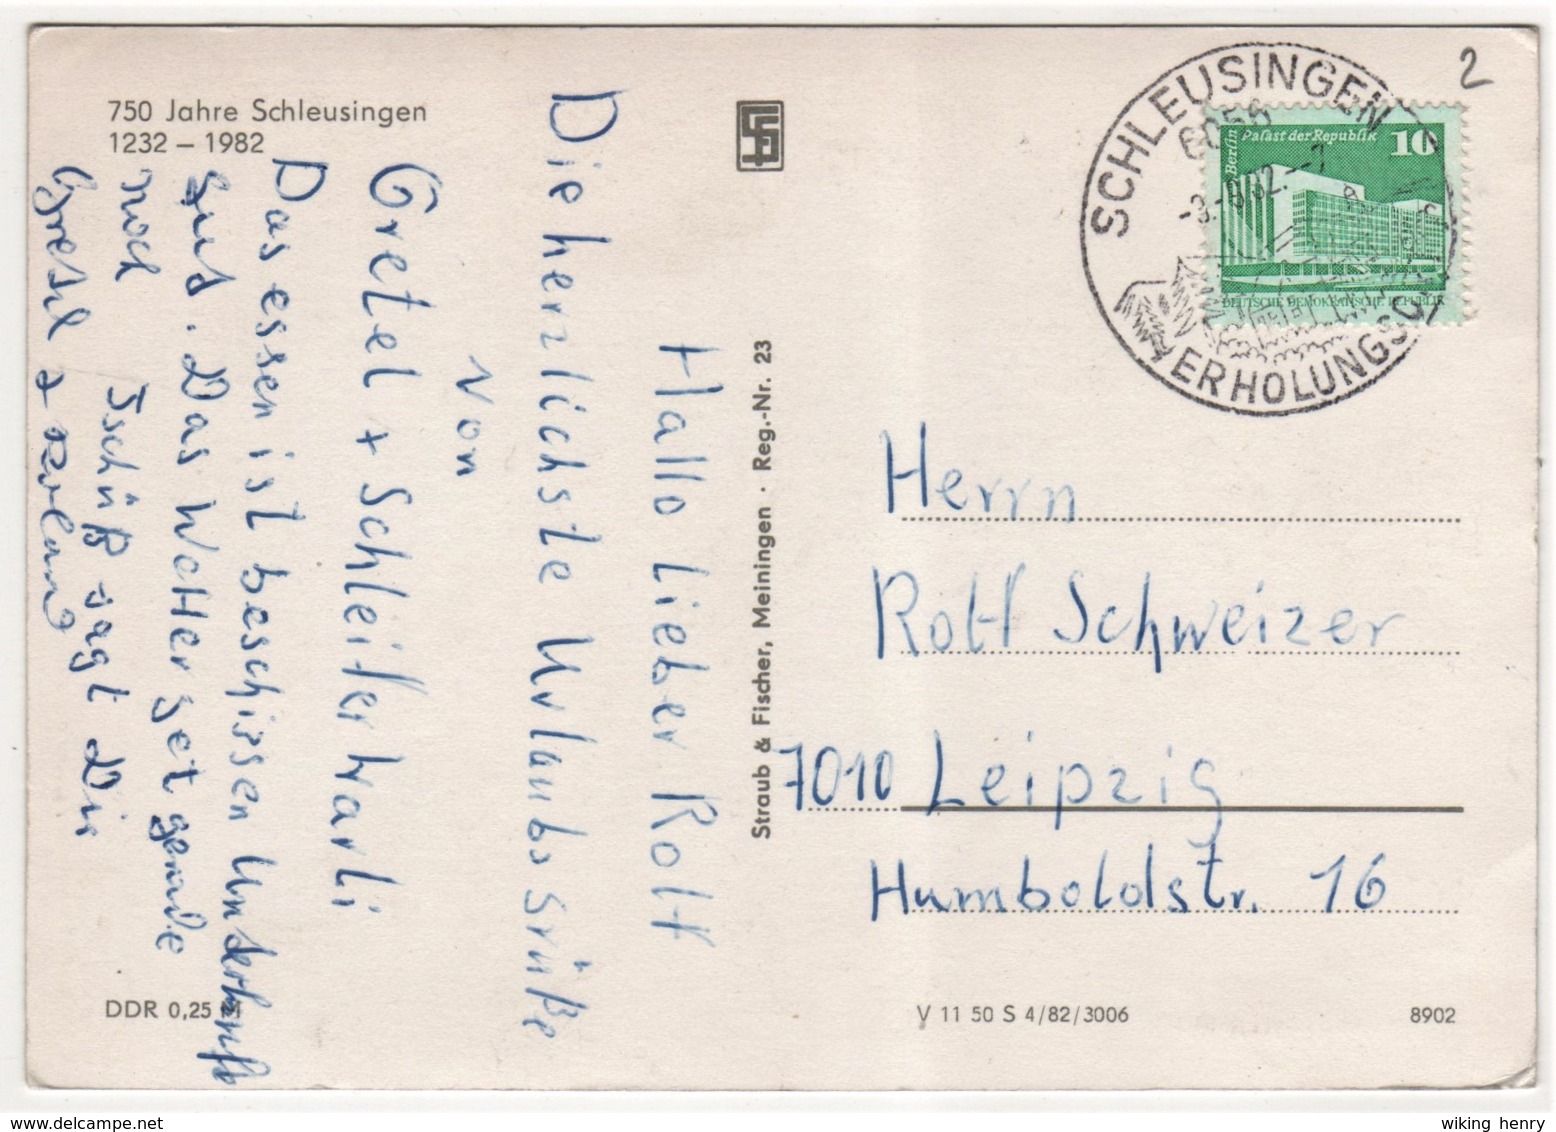 750 Jahre Schleusingen
1232 – 1982
Hallo Lieber Rolf
Die herzlichste Urlaubsgrüße
von
Gretel + Schleifer Karli
Das essen ist beschissen Unterkunft
gut. Das Wetter get gerade
noch Tschüß sagt Dir
Gretel +
Straub & Fischer, Meiningen · Reg.-Nr. 23
DDR 0,25 M
2
SCHLEUSINGEN
6056
ERHOLUNGSO
Berlin
Palast der Republik
10
DEUTSCHE DEMOKRATISCHE REPUBLIK
Herrn
Rolf Schweizer
7010 Leipzig
Humboldstr. 16
V 11 50 S 4/82/3006
8902
wiking henry